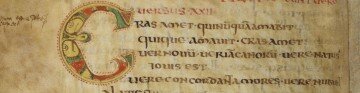 UERSUS XXII
CRAS AMET QUINUNQUAAMAUIT
QUIQUE AMAUIT CRAS AMET
UER NOUU UER IACANORU UERE NATUS
IOUIS EST
UERE CONCORDANT AMORES UERE NUBUN